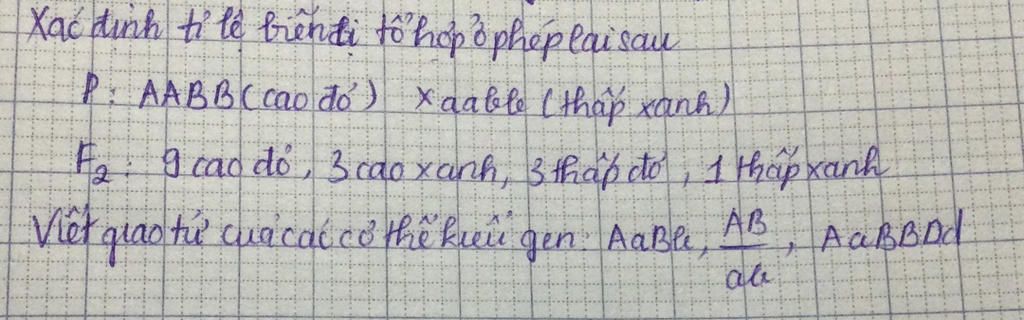 Xác định tỉ lệ biến dị tổ hợp ở phép lai sau
P: AABB (cao đỏ) x aabb (thấp xanh)
F2: 9 cao đỏ, 3 cao xanh, 3 thấp đỏ, 1 thấp xanh
Viết giao tử của các cơ thể kiểu gen: AaBb, AB/ab, AaBBDd